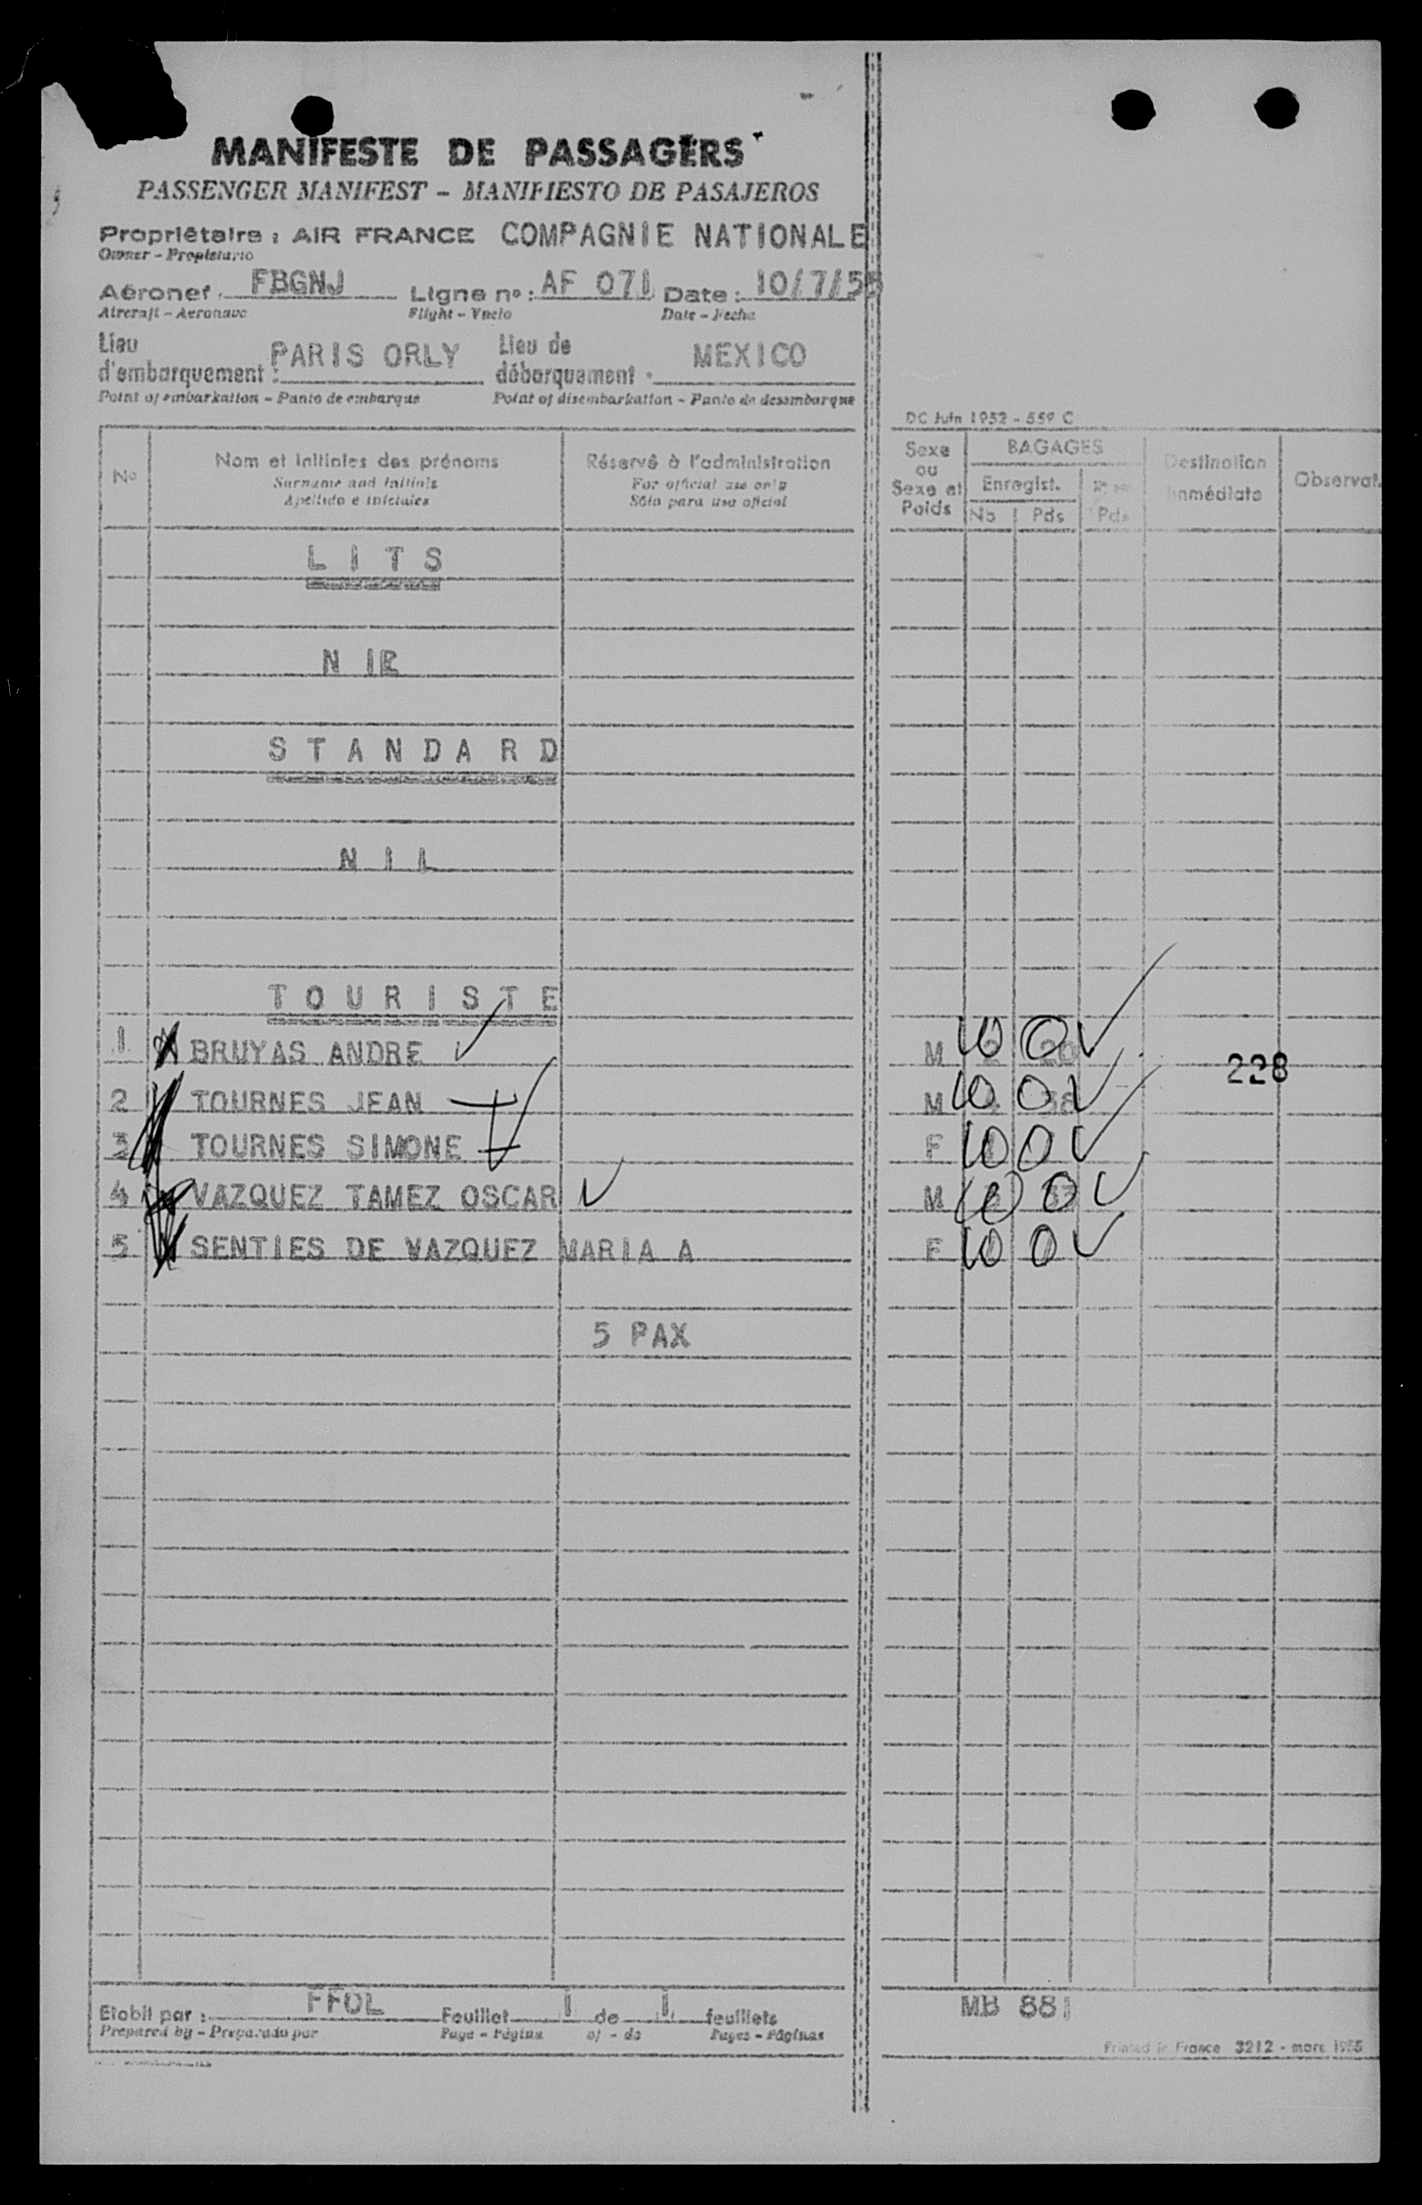 MANIFESTE DE PASSAGERS
PASSENGER MANIFEST - MANIFIESTO DE PASAJEROS
Propriétaire : AIR FRANCE COMPAGNIE NATIONALE
Owner - Propietario
Aéronef FBGNJ Ligne no : AF 071 Date : 10/7/55
Aircraft - Aeronave Flight - Vuelo Date - Fecha
Lieu d'embarquement : PARIS ORLY Lieu de débarquement MEXICO
Point of embarkation - Punto de embarque Point of disembarkation - Punto de desembarque
DC Juin 1952 - 559 C
No Nom et initiales des prénoms Réservé à l'administration Sexe ou Sexe et Poids BAGAGES Destination immédiate Observat.
Surname and initials For official use only Enregist.
Apellido e iniciales Sólo para uso oficial No Pds Pds
L I T S
N I L
S T A N D A R D
N I L
T O U R I S T E
1 BRUYAS ANDRE M 10 0
228
2 TOURNES JEAN M 10 0
3 TOURNES SIMONE F 10 0
4 VAZQUEZ TAMEZ OSCAR M 10 0
5 SENTIES DE VAZQUEZ MARIA A F 10 0
5 PAX
Etabli par : FFOL Feuillet 1 de 1 feuillets MB 881
Prepared by - Preparado por Page - Página of - de Pages - Páginas
Printed in France 3212 - mars 1955